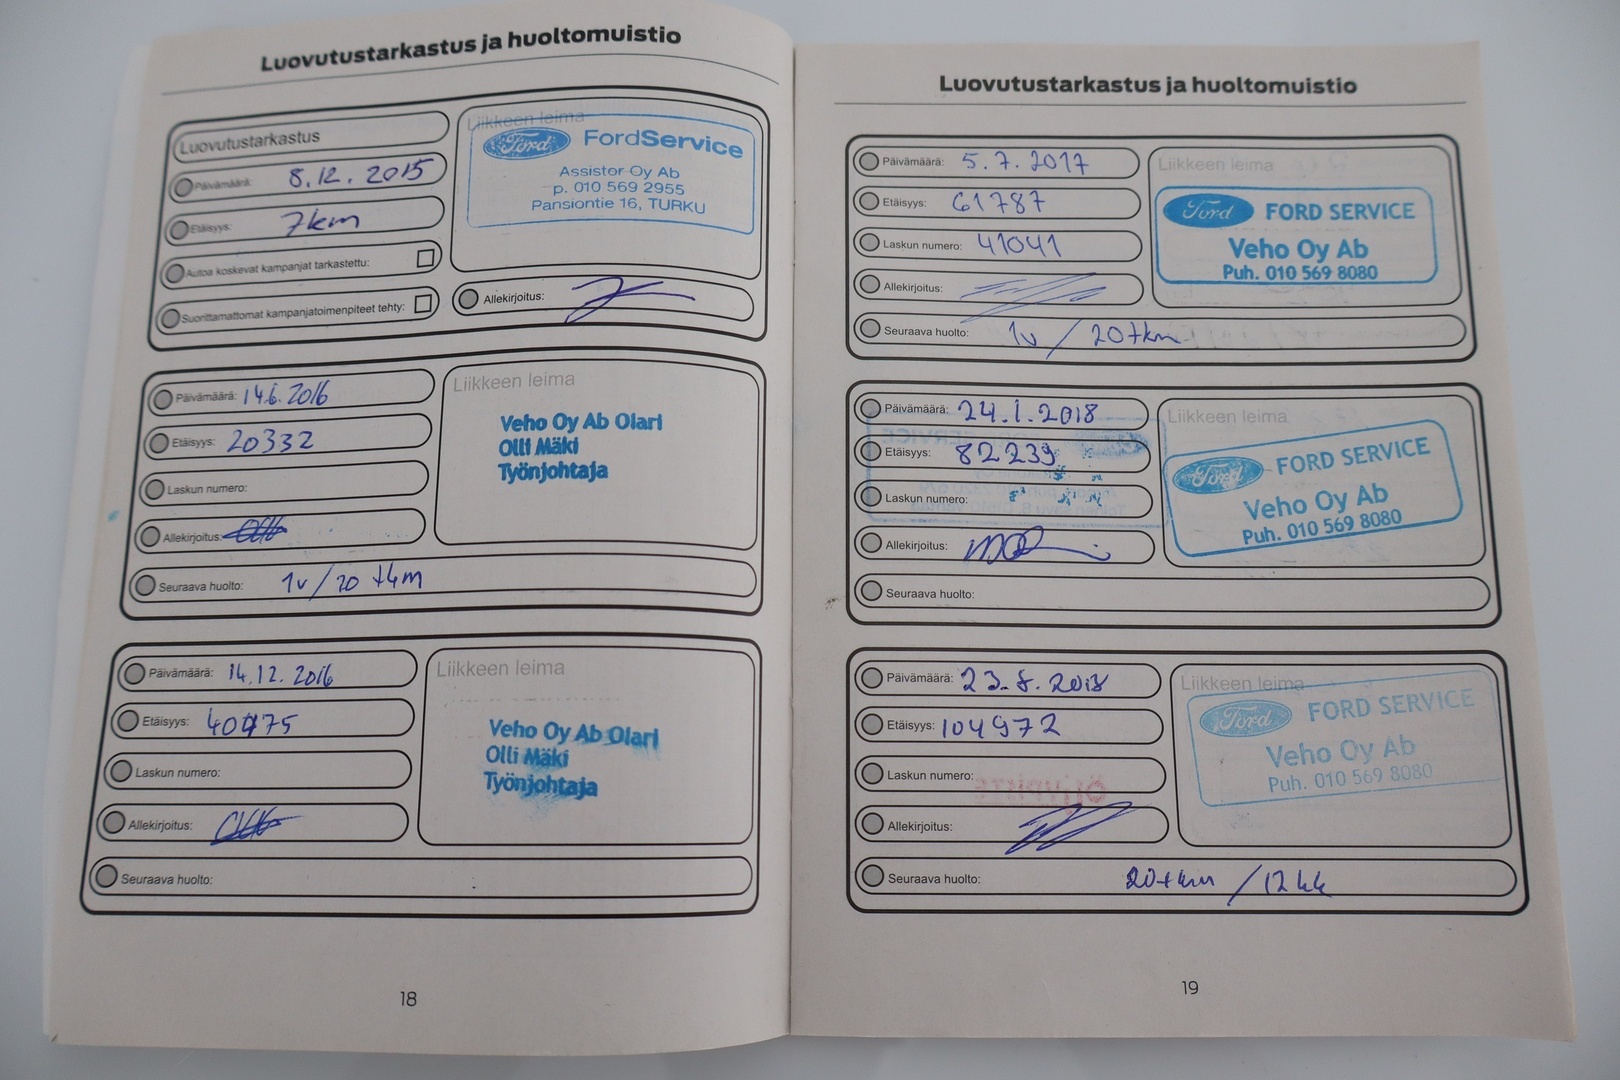 Luovutustarkastus ja huoltomuistio
Luovutustarkastus
Päivämäärä: 8.12.2015
Etäisyys: 7km
Autoa koskevat kampanjat tarkastettu:
Suorittamattomat kampanjatoimenpiteet tehty:
Liikkeen leima
Ford FordService
Assistor Oy Ab
p. 010 569 2955
Pansiontie 16, TURKU
Allekirjoitus:
Päivämäärä: 14.6.2016
Etäisyys: 20332
Laskun numero:
Allekirjoitus:
Seuraava huolto: 1v/20 tkm
Liikkeen leima
Veho Oy Ab Olari
Olli Mäki
Työnjohtaja
Päivämäärä: 14.12.2016
Etäisyys: 40475
Laskun numero:
Allekirjoitus:
Seuraava huolto:
Liikkeen leima
Veho Oy Ab Olari
Olli Mäki
Työnjohtaja
18
Luovutustarkastus ja huoltomuistio
Päivämäärä: 5.7.2017
Etäisyys: 61787
Laskun numero: 41041
Allekirjoitus:
Seuraava huolto: 1v / 20tkm
Liikkeen leima
Ford FORD SERVICE
Veho Oy Ab
Puh. 010 569 8080
Päivämäärä: 24.1.2018
Etäisyys: 82239
Laskun numero:
Allekirjoitus:
Seuraava huolto:
Liikkeen leima
Ford FORD SERVICE
Veho Oy Ab
Puh. 010 569 8080
Päivämäärä: 23.8.2018
Etäisyys: 104972
Laskun numero:
Allekirjoitus:
Seuraava huolto: 20tkm / 12kk
Liikkeen leima
Ford FORD SERVICE
Veho Oy Ab
Puh. 010 569 8080
19